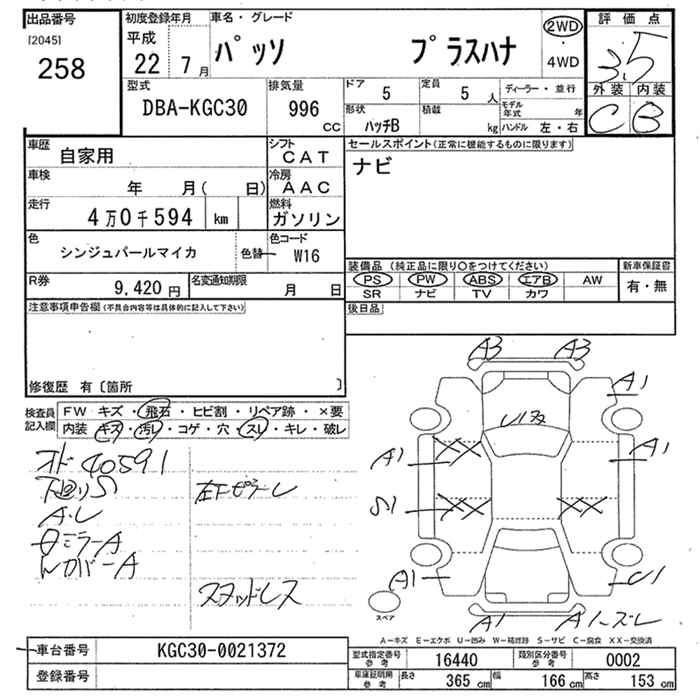 出品番号
[2045]
258
初度登録年月
平成
22年 7月
車名・グレード
パッソ プラスハナ
2WD
・
4WD
評価点
3.5
外装 内装
C B
型式
DBA-KGC30
排気量
996
CC
ドア
5
定員
5 人
ディーラー・並行
形状
ハッチB
積載
kg
モデル年式 年
ハンドル 左・右
車歴
自家用
シフト
CAT
車検
年 月( 日)
冷房
AAC
走行
4万0千594 km
燃料
ガソリン
色
シンジュパールマイカ
色替
色コード
W16
R券
9,420円
名変通知期限
月 日
セールスポイント(正常に機能するものに限ります)
ナビ
装備品 (純正品に限り〇をつけてください)
PS PW ABS エアB AW
SR ナビ TV カワ
新車保証書
有・無
後日品
注意事項申告欄(不具合内容等は具体的に記入して下さい)
修復歴 有〔箇所 〕
検査員記入欄
FW キズ・飛石・ヒビ割・リペア跡・×要
内装 キズ・汚レ・コゲ・穴・スレ・キレ・破レ
オド 40591
下廻りS
A・U
左ドピラーレ
ミラーA
カバーA
スタッドレス
A3 A3
A1
A1 A1
S1
XX XX
XX
A1 U1
A1 A1ーズレ
スペア
A-キズ E-エクボ U-凹み W-補修跡 S-サビ C-腐食 XX-交換済
車台番号
KGC30-0021372
登録番号
型式指定番号
参考
16440
類別区分番号
参考
0002
車庫証明用
参考
長さ
365 cm
幅
166 cm
高さ
153 cm